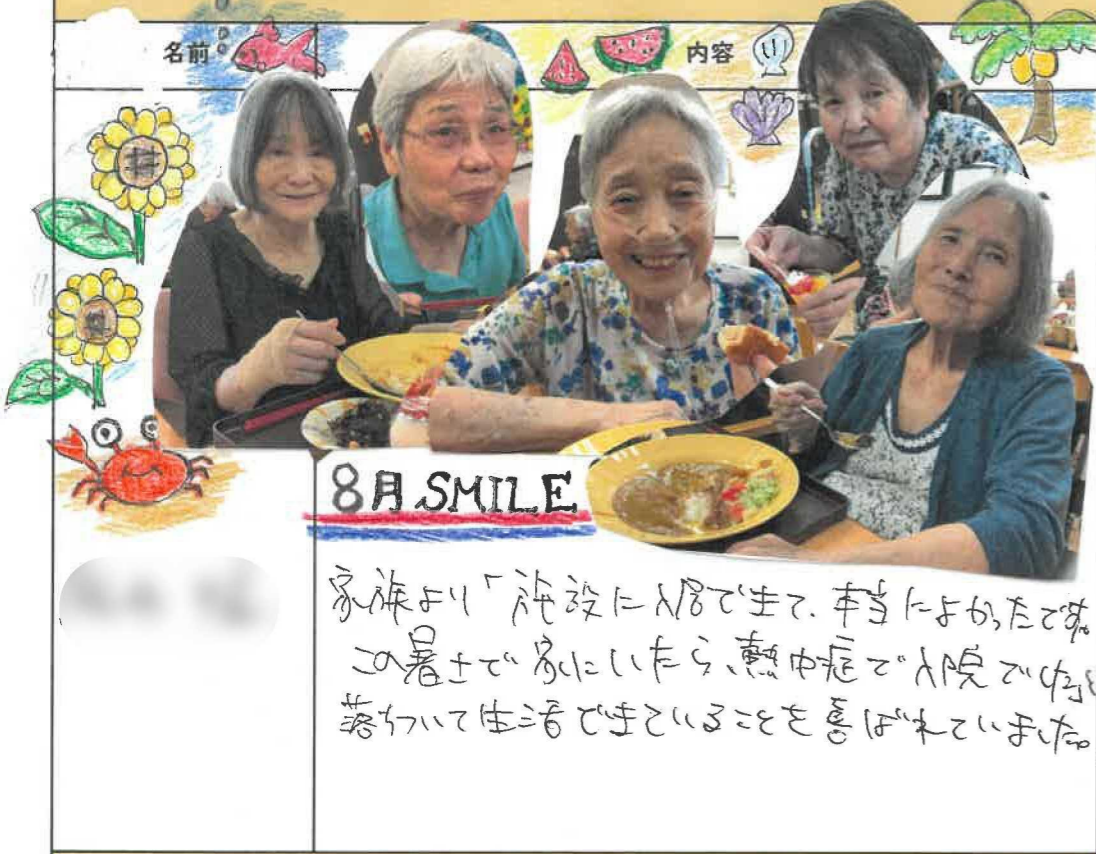 名前
内容
8月 SMILE
家族より「施設に入居できて、本当によかったです。
この暑さで家にいたら、熱中症で入院でした」と
落ちついて生活できていることを喜ばれていました。